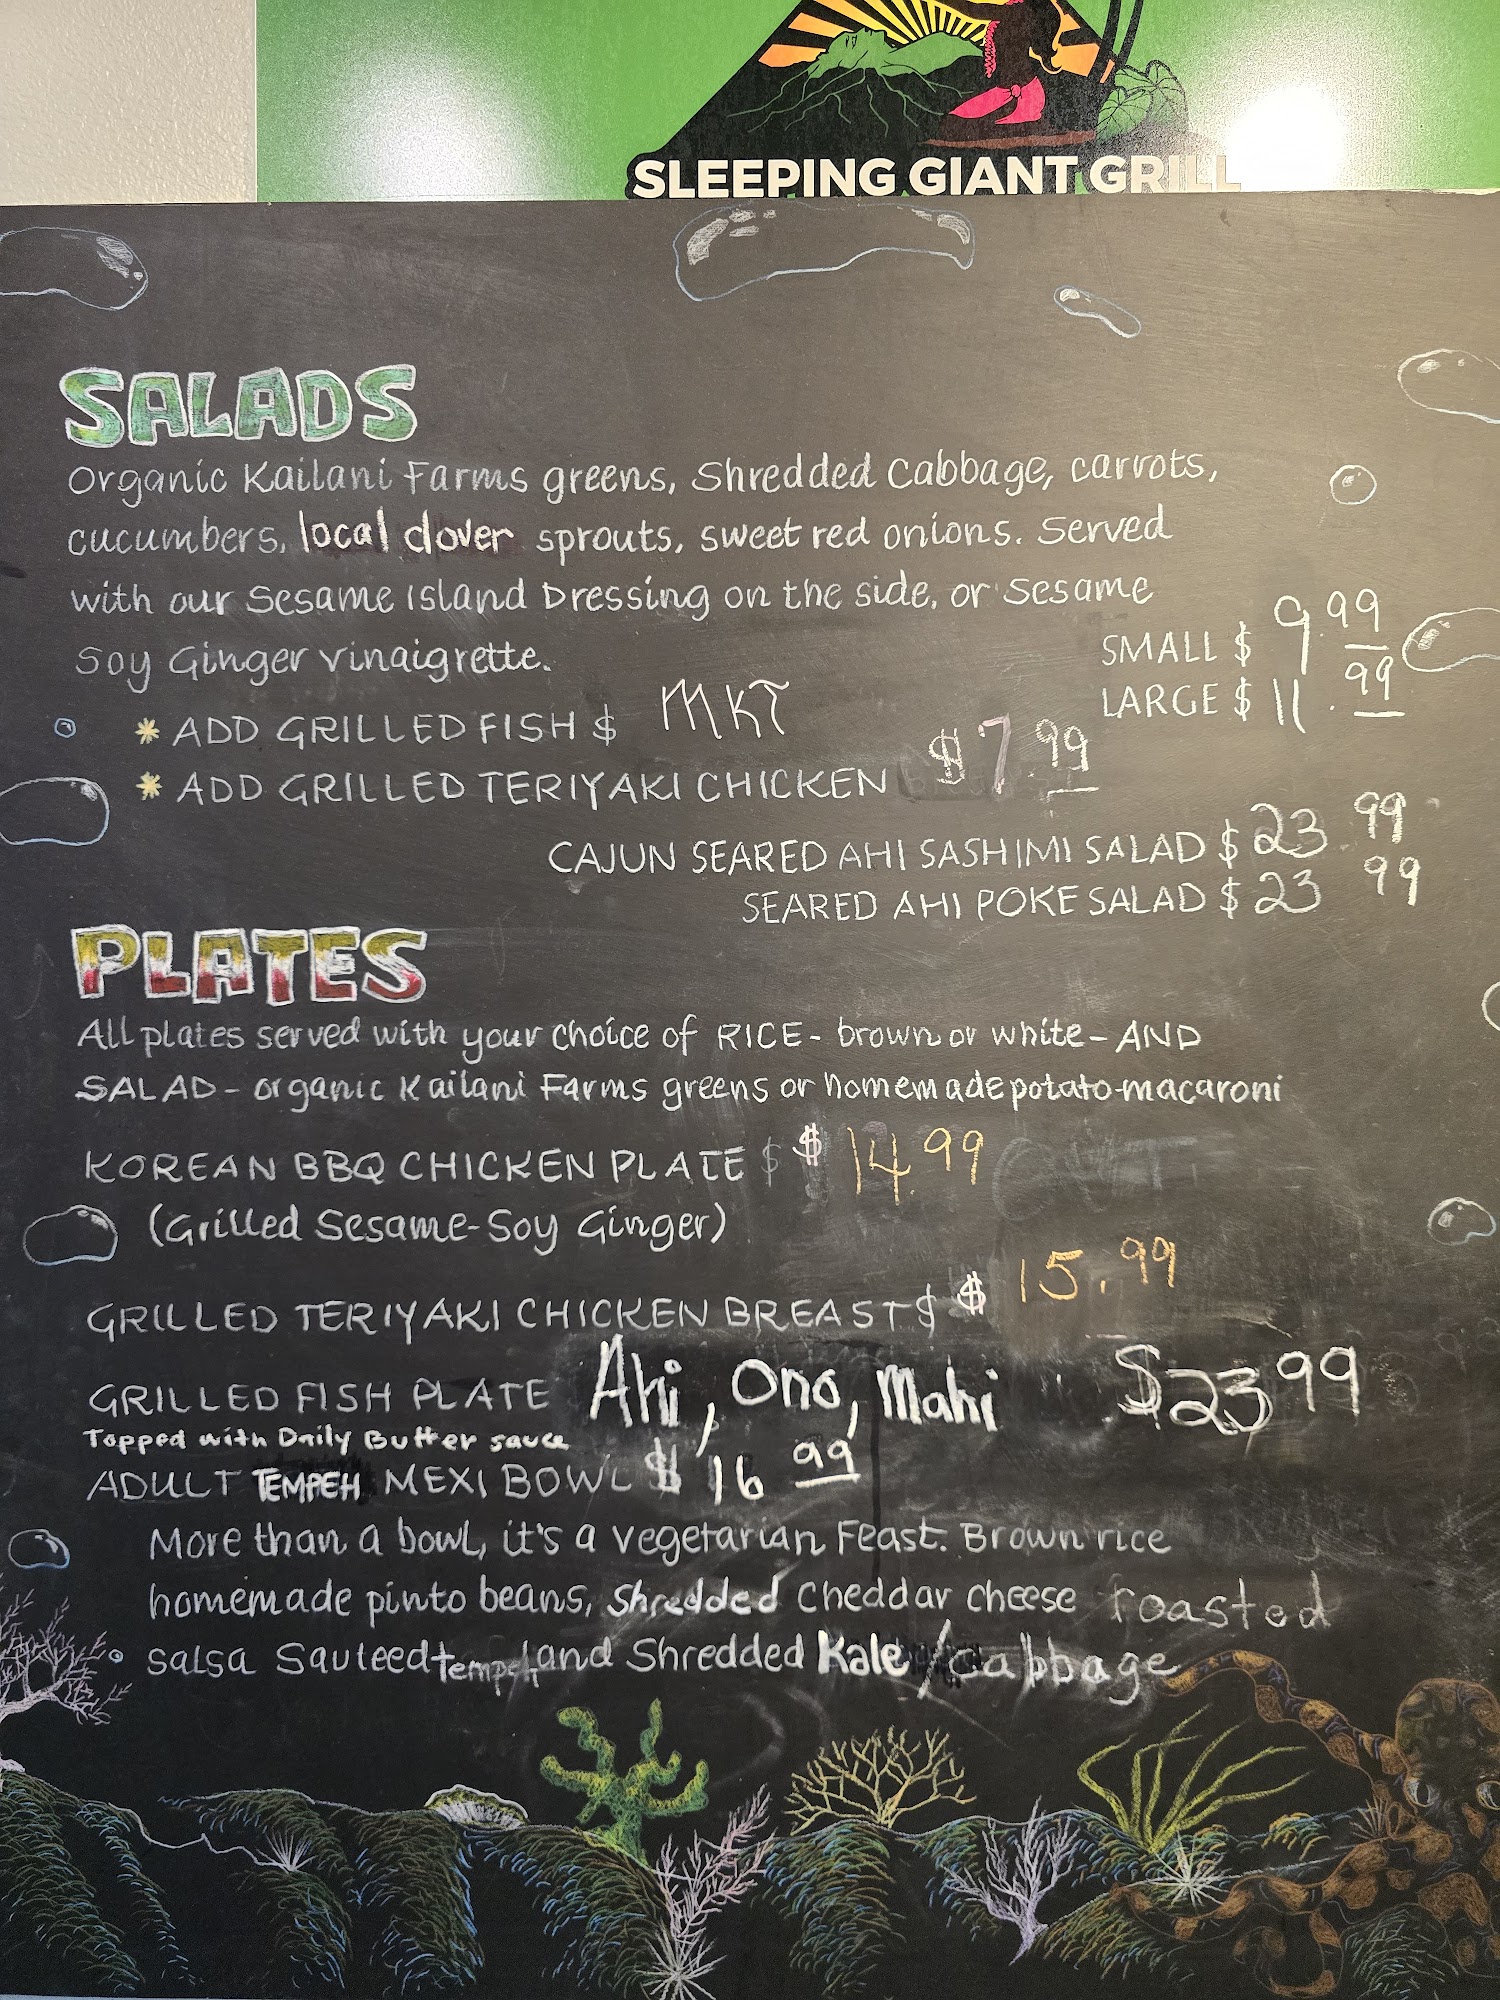 SLEEPING GIANT GRILL
SALADS
Organic Kailani Farms greens, Shredded Cabbage, carrots,
cucumbers, local clover sprouts, sweet red onions. Served
with our Sesame Island Dressing on the side, or Sesame
Soy Ginger vinaigrette.
SMALL $ 9.99
LARGE $ 11.99
* ADD GRILLED FISH $ MKT
* ADD GRILLED TERIYAKI CHICKEN $7.99
CAJUN SEARED AHI SASHIMI SALAD $ 23 99
SEARED AHI POKE SALAD $ 23 99
PLATES
All plates served with your choice of RICE- brown or white- AND
SALAD- organic Kailani Farms greens or homemade potato-macaroni
KOREAN BBQ CHICKEN PLATE $ $ 14.99
(Grilled Sesame-Soy Ginger)
GRILLED TERIYAKI CHICKEN BREAST $ $ 15.99
GRILLED FISH PLATE Ahi, Ono, Mahi $23 99
Topped with Daily Butter sauce
ADULT TEMPEH MEXI BOWL $ 16 99
More than a bowl, it's a vegetarian Feast. Brown rice
homemade pinto beans, Shredded Cheddar cheese roasted
salsa Sauteed tempeh and Shredded Kale / Cabbage